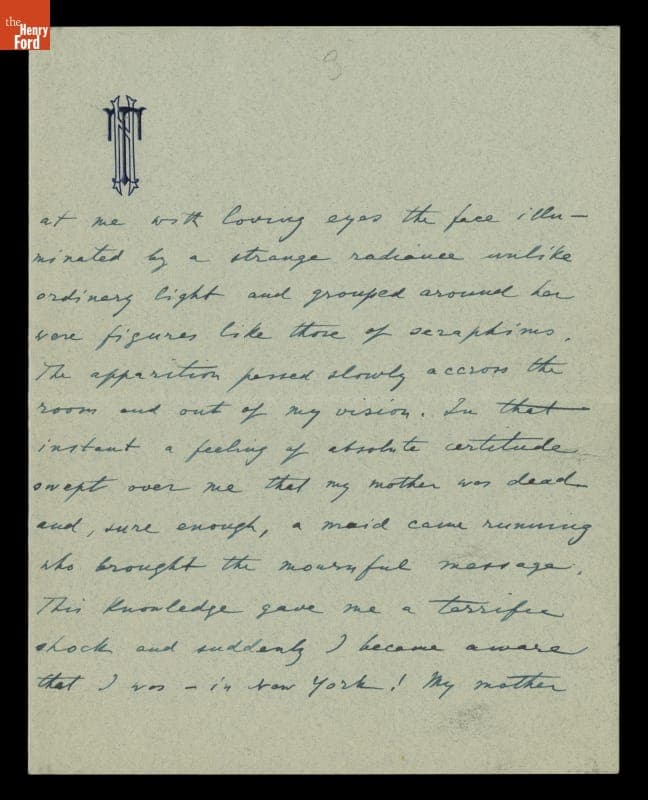 the
Henry
Ford
3
NT
at me with loving eyes the face illu-
minated by a strange radiance unlike
ordinary light and grouped around her
were figures like those of seraphims.
The apparition passed slowly accross the
room and out of my vision. In that
instant a feeling of absolute certitude
swept over me that my mother was dead
and, sure enough, a maid came running
who brought the mournful message.
This knowledge gave me a terrific
shock and suddenly I became aware
that I was – in New York! My mother